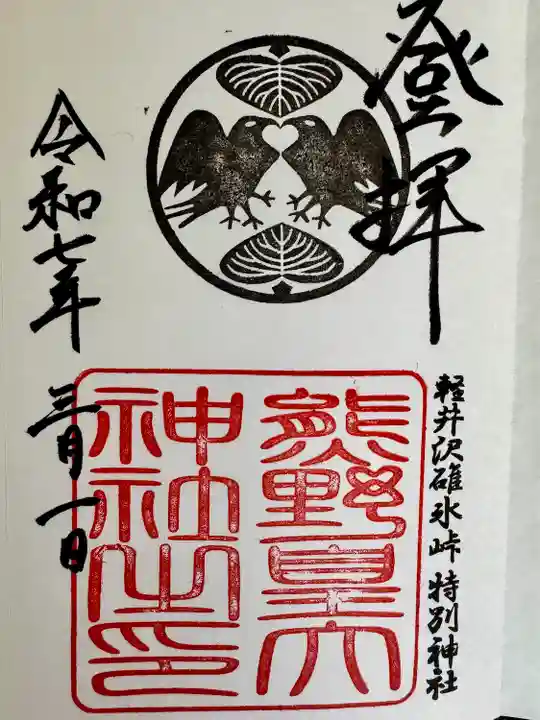 登拝
軽井沢碓氷峠 特別神社
熊野皇大
神社之印
令和七年 三月一日